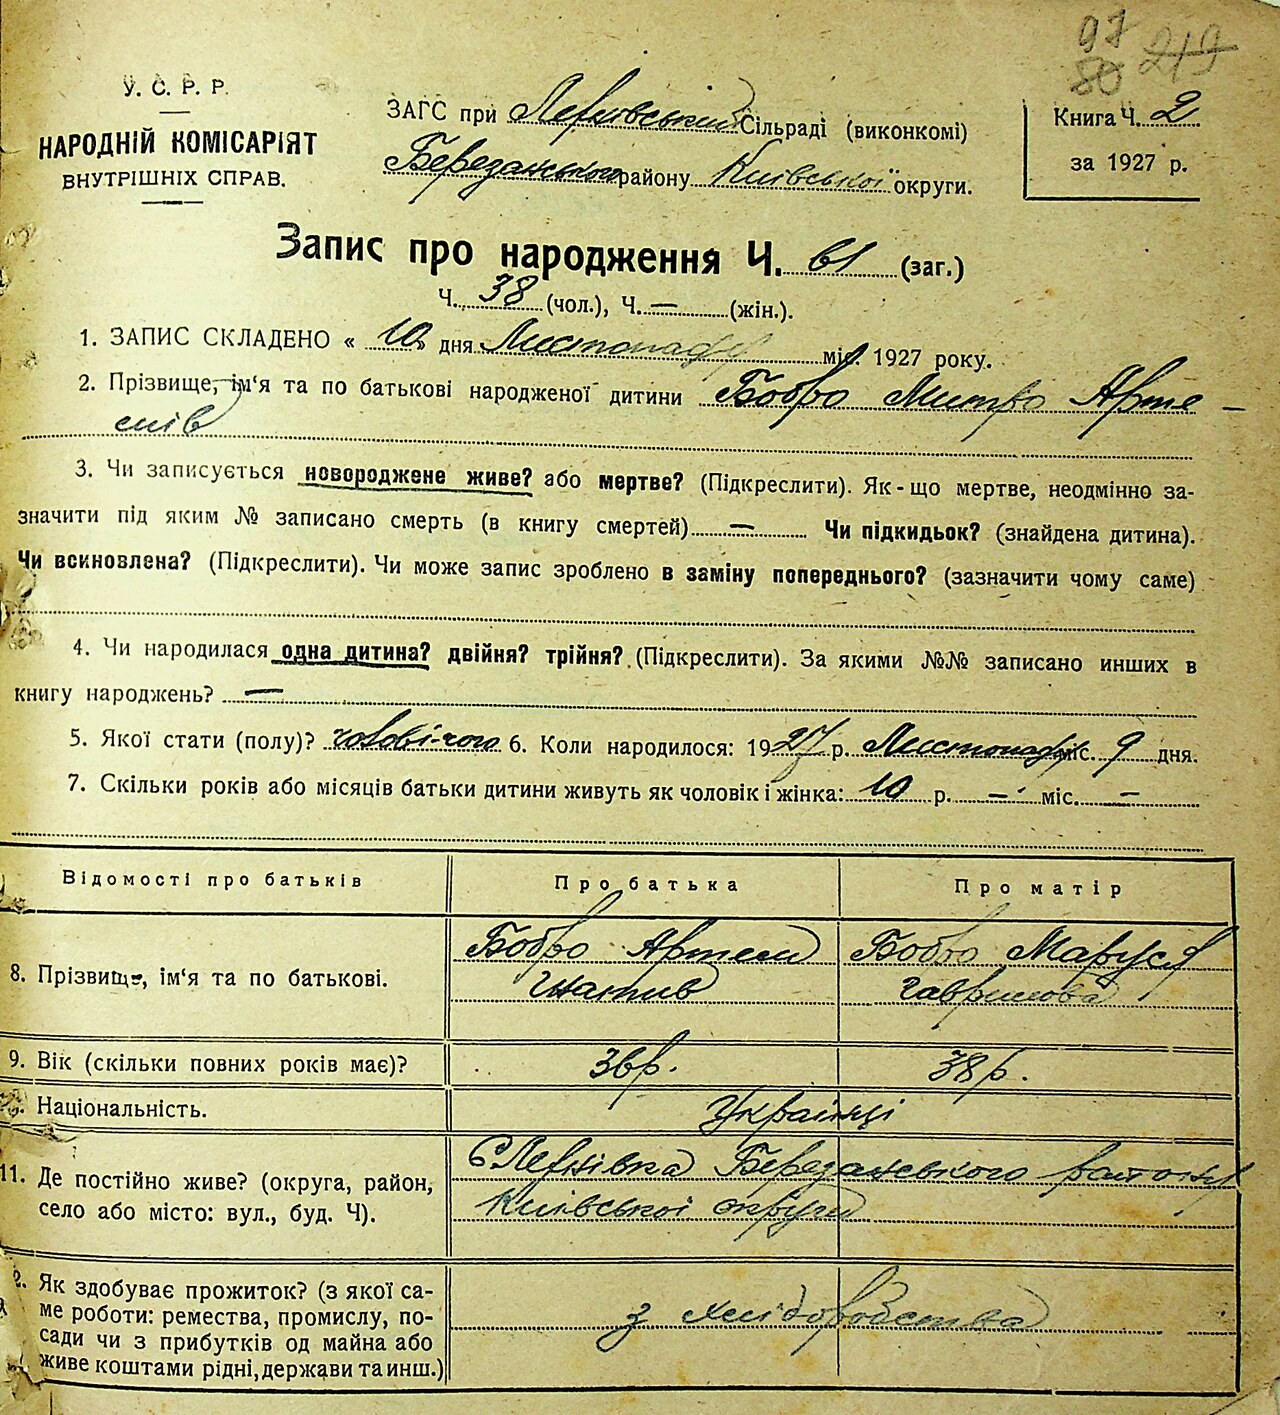 97
80 219
У. С. Р. Р.
НАРОДНІЙ КОМІСАРІЯТ
ВНУТРІШНІХ СПРАВ.
ЗАГС при Лехнівській Сільраді (виконкомі)
Березанського району Київської округи.
Книга Ч. 2
за 1927 р.
Запис про народження Ч. 61 (заг.)
Ч. 38 (чол.), Ч. — (жін.).
1. ЗАПИС СКЛАДЕНО « 10 » дня Листопаду міс. 1927 року.
2. Прізвище, ім'я та по батькові народженої дитини Бобро Митро Арте-
мів
3. Чи записується новороджене живе? або мертве? (Підкреслити). Як-що мертве, неодмінно за-
значити під яким № записано смерть (в книгу смертей) — Чи підкидьок? (знайдена дитина).
Чи всиновлена? (Підкреслити). Чи може запис зроблено в заміну попереднього? (зазначити чому саме)
4. Чи народилася одна дитина? двійня? трійня? (Підкреслити). За якими №№ записано инших в
книгу народжень? —
5. Якої стати (полу)? чоловічого 6. Коли народилось: 1927 р. Листопаду міс. 9 дня.
7. Скільки років або місяців батьки дитини живуть як чоловік і жінка: 10 р. — міс. —
Відомості про батьків Про батька Про матір
8. Прізвище, ім'я та по батькові. Бобро Артем Бобро Маруся
Гнатив Гаврилова
9. Вік (скільки повних років має)? 36 р. 38 р.
Національність. Українці
11. Де постійно живе? (округа, район, с Лехнівка Березанського району
село або місто: вул., буд. Ч). Київської округи
2. Як здобуває прожиток? (з якої са-
ме роботи: ремества, промислу, по- з хлібробства
сади чи з прибутків од майна або
живе коштами рідні, держави та инш.)